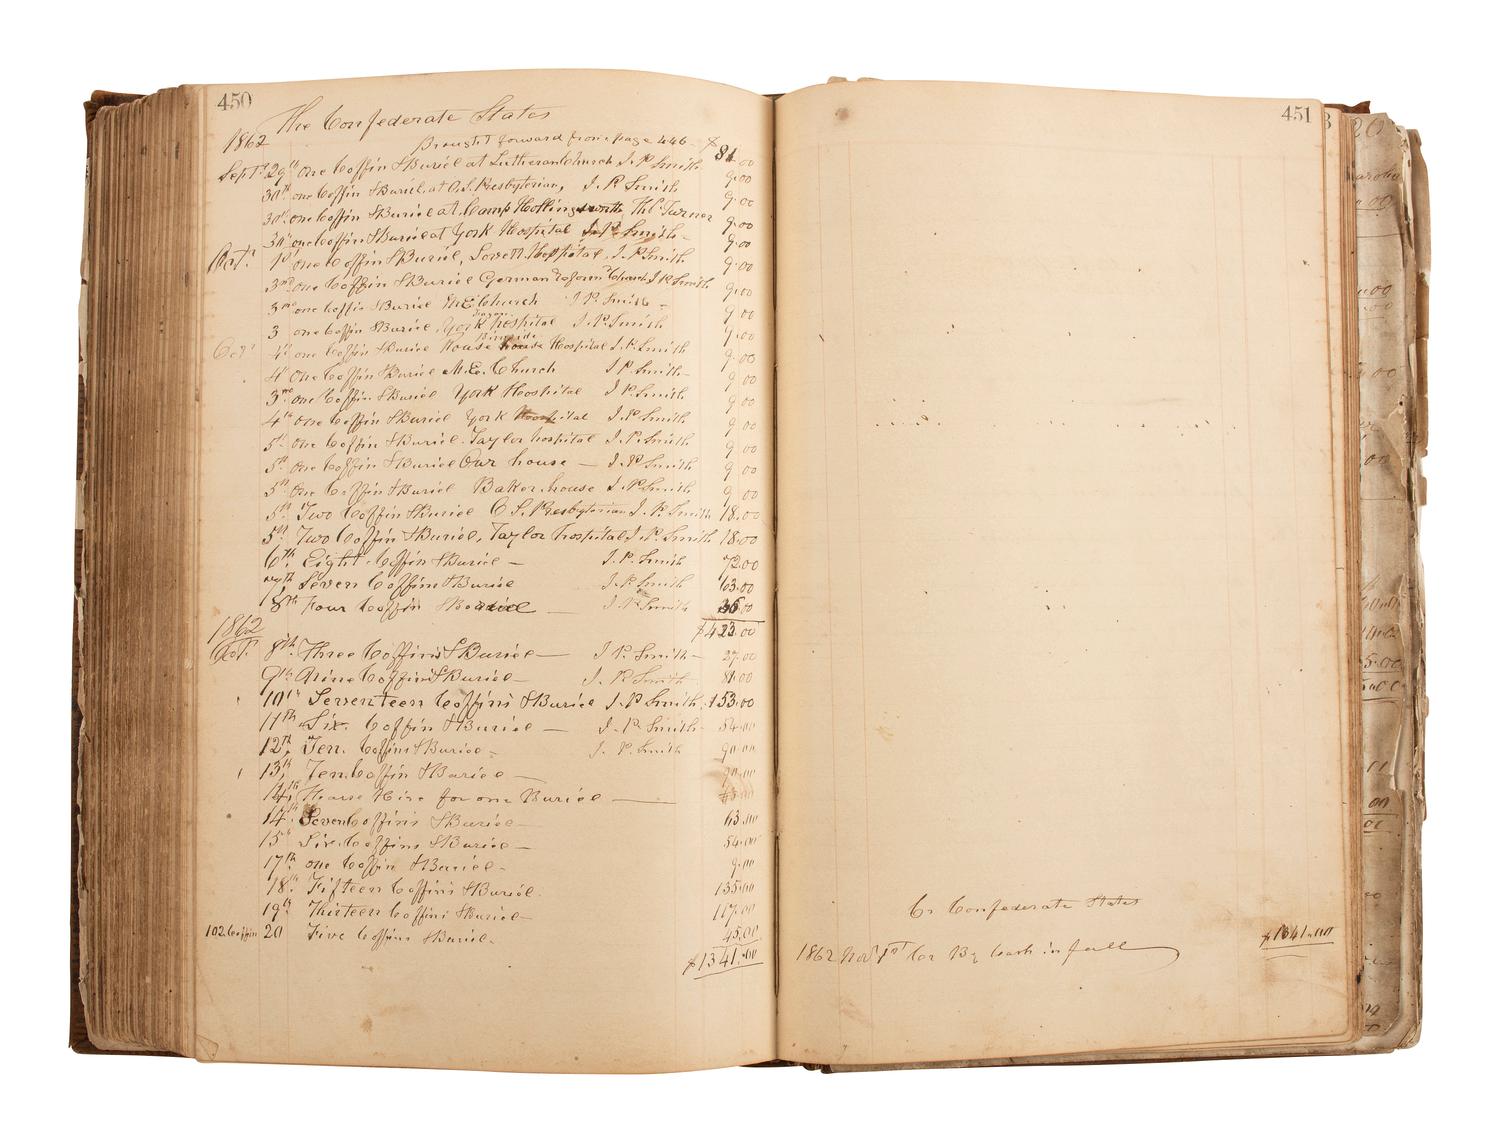 450
The Confederate States
1862 Brought forward from page 446 $ 81.00
Sept. 29th one Coffin & Buriel at Lutheran Church J. P. Smith 9.00
30th one Coffin & Buriel at O.S. Presbyterian, J. P. Smith 9.00
30th one Coffin & Buriel at Camp Hollingsworth Turner 9.00
30th one Coffin & Buriel at York Hospital J. P. Smith 9.00
Oct. 1st one Coffin & Buriel, Lovett Hospital, J. P. Smith 9.00
3rd one Coffin & Buriel German Reform Church J P Smith 9.00
3rd one Coffin & Buriel M.E. Church J. P. Smith 9.00
3 one Coffin & Buriel, York Hospital J. P. Smith 9.00
Oct. 4th one Coffin & Buriel House Hospital J. P. Smith 9.00
4 one Coffin & Buriel M.E. Church J P. Smith 9.00
3rd one Coffin & Buriel York Hospital J P. Smith 9.00
4th one Coffin & Buriel York Hospital J. P. Smith 9.00
5th one Coffin & Buriel. Taylor hospital J. P. Smith 9.00
5th one Coffin & Buriel Our house — J. P. Smith 9.00
5th One Coffin & Buriel Baker house J. P. Smith 9.00
5th Two Coffin & Buriel O S. Presbyterian J. P. Smith 18.00
5th Two Coffin & Buriel, Taylor hospital J. P. Smith 18.00
6th Eight Coffin & Buriel — J. P. Smith 72.00
7th Seven Coffin & Buriel J. P. Smith 63.00
8th Four Coffin & Buriel — J. P. Smith 36.00
1862 $423.00
Oct. 8th Three Coffins & Buriel — J. P. Smith 27.00
9th Nine Coffins & Buriel — J. P. Smith 81.00
10th Seventeen Coffins & Buriel J. P. Smith. 153.00
11th Six Coffin & Buriel — J. P. Smith 54.00
12th Ten. Coffins & Buriel — J. P. Smith 90.00
13th Ten Coffin & Buriel — 90.00
14th Hearse Hire for one Buriel —
14th Seven Coffins & Buriel — 63.00
15th Six Coffins & Buriel — 54.00
17th one Coffin & Buriel — 9.00
18th Fifteen Coffins & Buriel. 135.00
19th Thirteen Coffins & Buriel — 117.00
102 Coffin 20 Five Coffins & Buriel. 45.00
$1341.00
451
Cr Confederate States
1862 Nov 1st Cr By Cash in full $1341.00